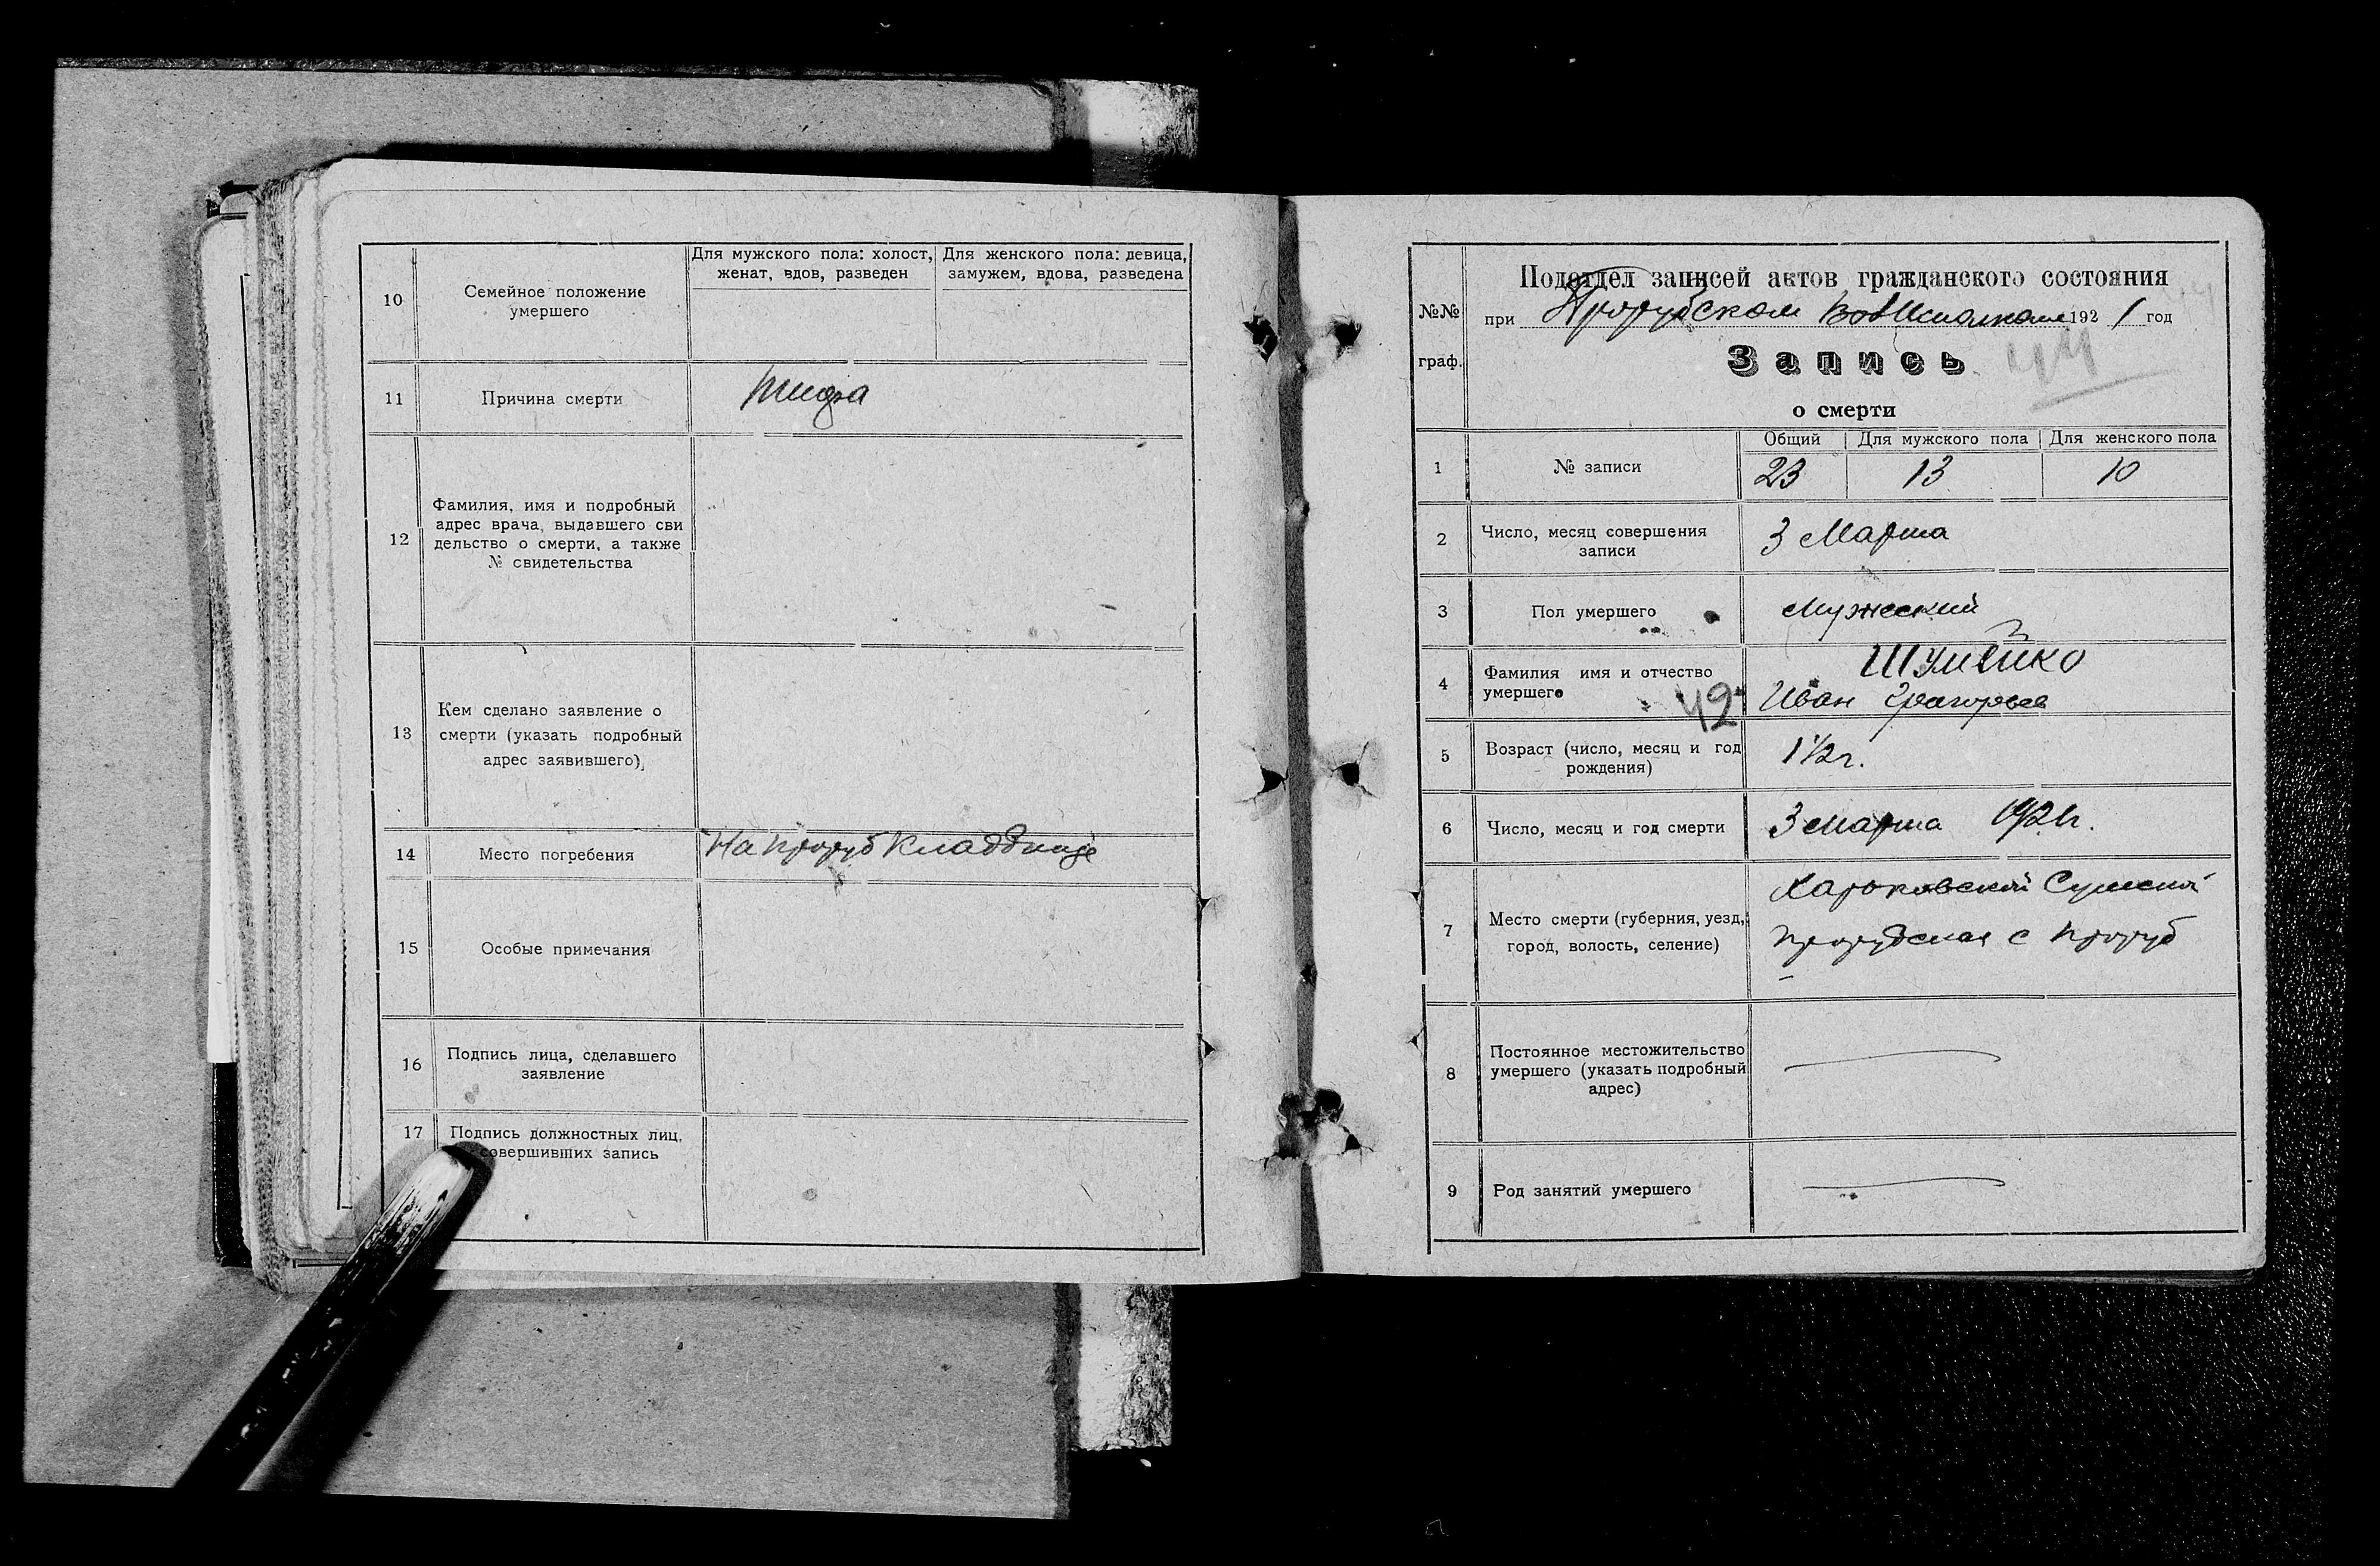 10
Семейное положение
умершего
Для мужского пола: холост,
женат, вдов, разведен
Для женского пола: девица,
замужем, вдова, разведена
11
Причина смерти
Тифа
12
Фамилия, имя и подробный
адрес врача, выдавшего сви
дельство о смерти, а также
№ свидетельства
13
Кем сделано заявление о
смерти (указать подробный
адрес заявившего)
14
Место погребения
На Проруб Кладбище
15
Особые примечания
16
Подпись лица, сделавшего
заявление
17
Подпись должностных лиц,
совершивших запись
№№
граф.
Подотдел записей актов гражданского состояния
при Прорубском Волисполкоме 1921 год
Запись
44
о смерти
1
№ записи
Общий
Для мужского пола
Для женского пола
23
13
10
2
Число, месяц совершения
записи
3 Марта
3
Пол умершего
Мужеский
4
Фамилия имя и отчество
умершего
42
Шумейко
Иван Григорьев
5
Возраст (число, месяц и год
рождения)
1½ г.
6
Число, месяц и год смерти
3 марта 1921 г.
7
Место смерти (губерния, уезд,
город, волость, селение)
Харьковской Сумской
Прорубская с Проруб
8
Постоянное местожительство
умершего (указать подробный
адрес)
9
Род занятий умершего